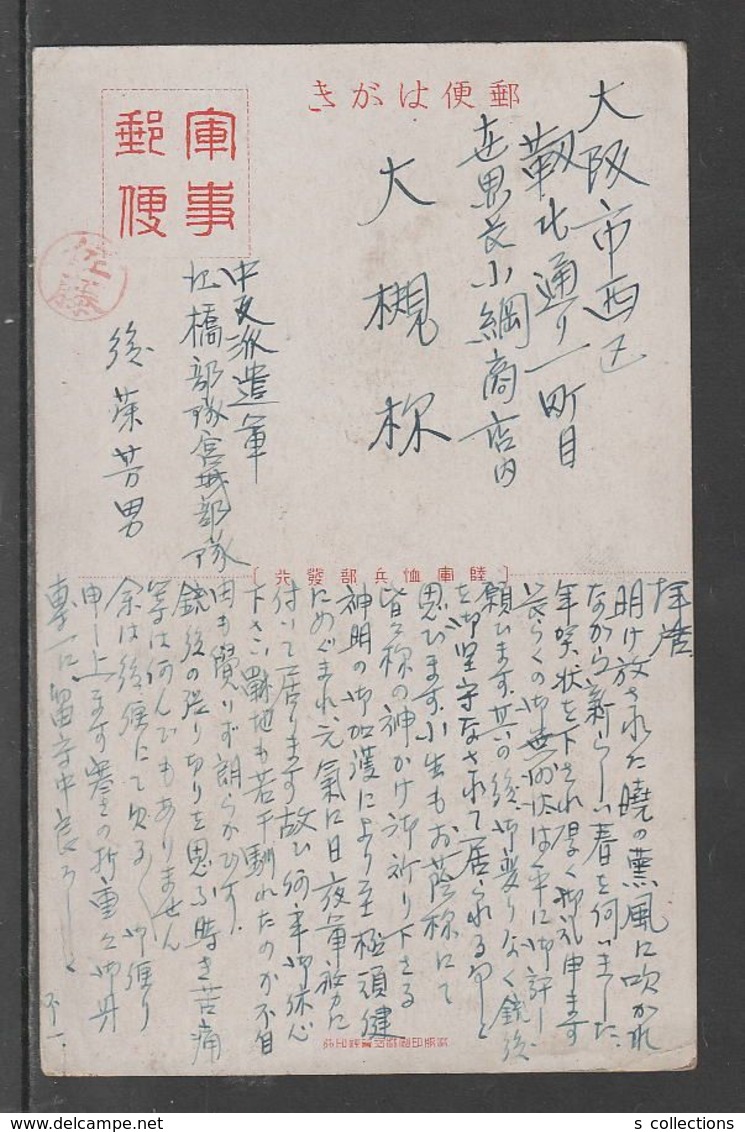 郵便はがき
軍事
郵便
大阪市西区
靱北通り一町目
世界長小綱商店内
大槻様
中支派遣軍
橋部隊宮城部隊
後藤芳男
佐藤
〔陸軍恤兵部發行〕
拝啓
明け放された曉の薫風に吹かれ
ながら新らしい春を伺いました
年賀状を下され厚く御礼申ます
長らくの御無沙汰は平に御許し
願ひます。其の後御変りなく銃後
を御堅守なされて居られる事と
思ひます。小生もお蔭様にて
皆々様の神かけ御祈り下さる
神明の御加護により至極頑健
にめぐまれ元氣に日夜軍務に
付いて居ります故ひ何卒御休心
下さい戰地も若干馴れたのか不自
由も覺りず朗らかです。
銃後の張り切りを思ふ時き苦痛
等は何んでもありません
余は後便にて次る 御便り
申し上ます寒さの折重々御丹
専一に留守中良ろしく
不一
s collections